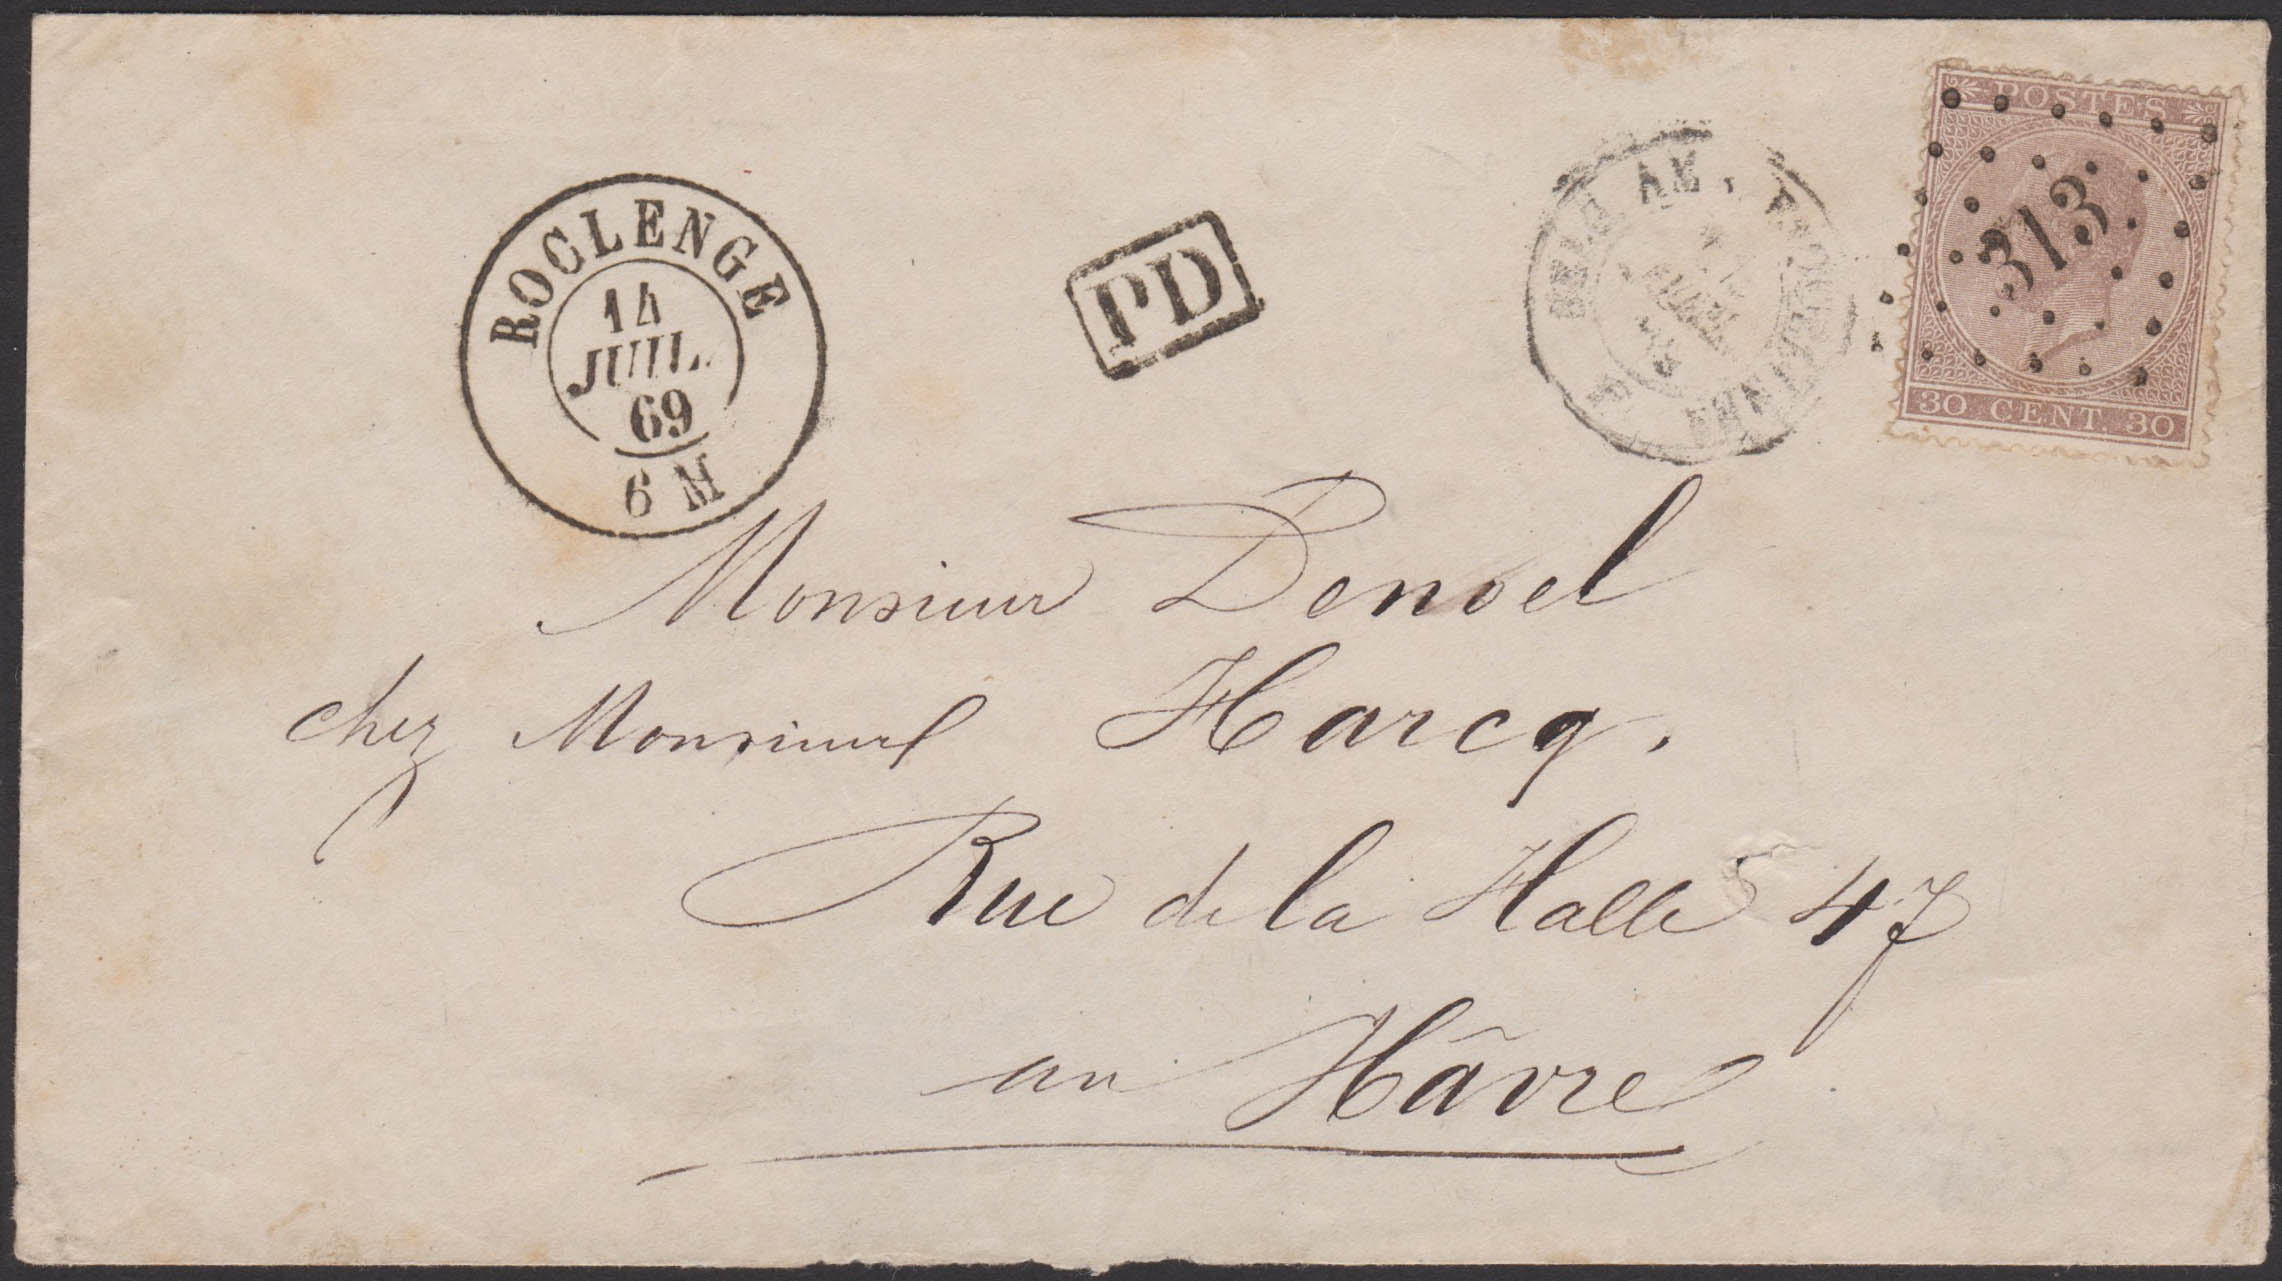 POSTES
313
30 CENT. 30
ROCLENGE
14
JUIL.
69
6 M
PD
Monsieur Denoel
chez Monsieur Harcq.
Rue de la Halle 47
au Hâvre